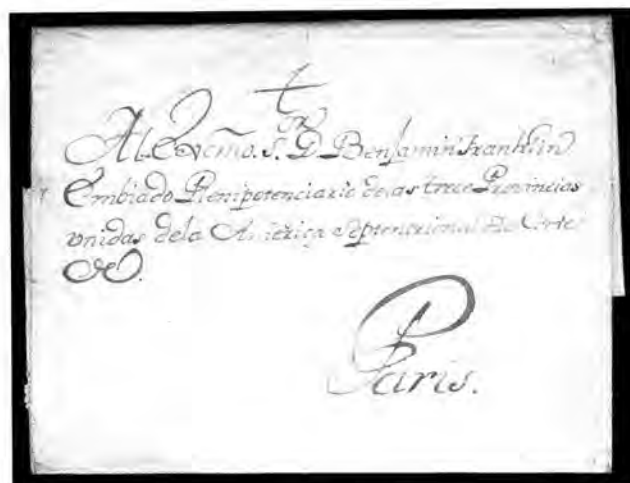 Al Excmo. Sr. D. Benjamin Franklin
Embiado Plenipotenciario de las trece Provincias
vnidas dela America Septentrional
&.
Paris.